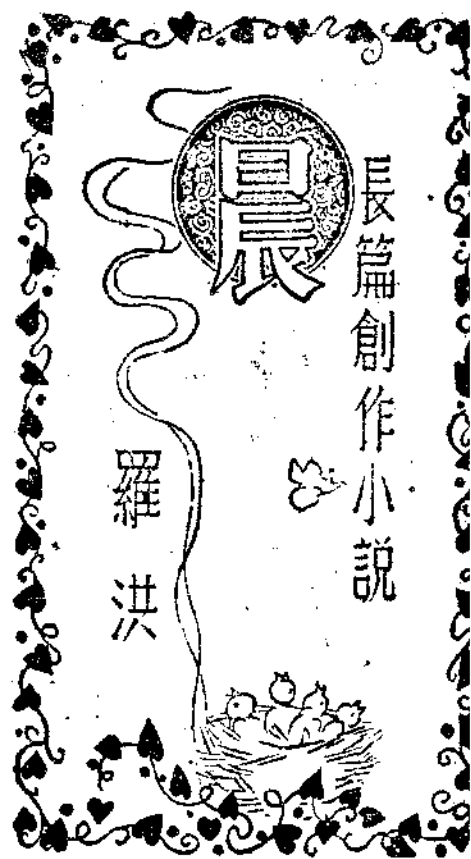 長篇創作小説
晨
羅洪